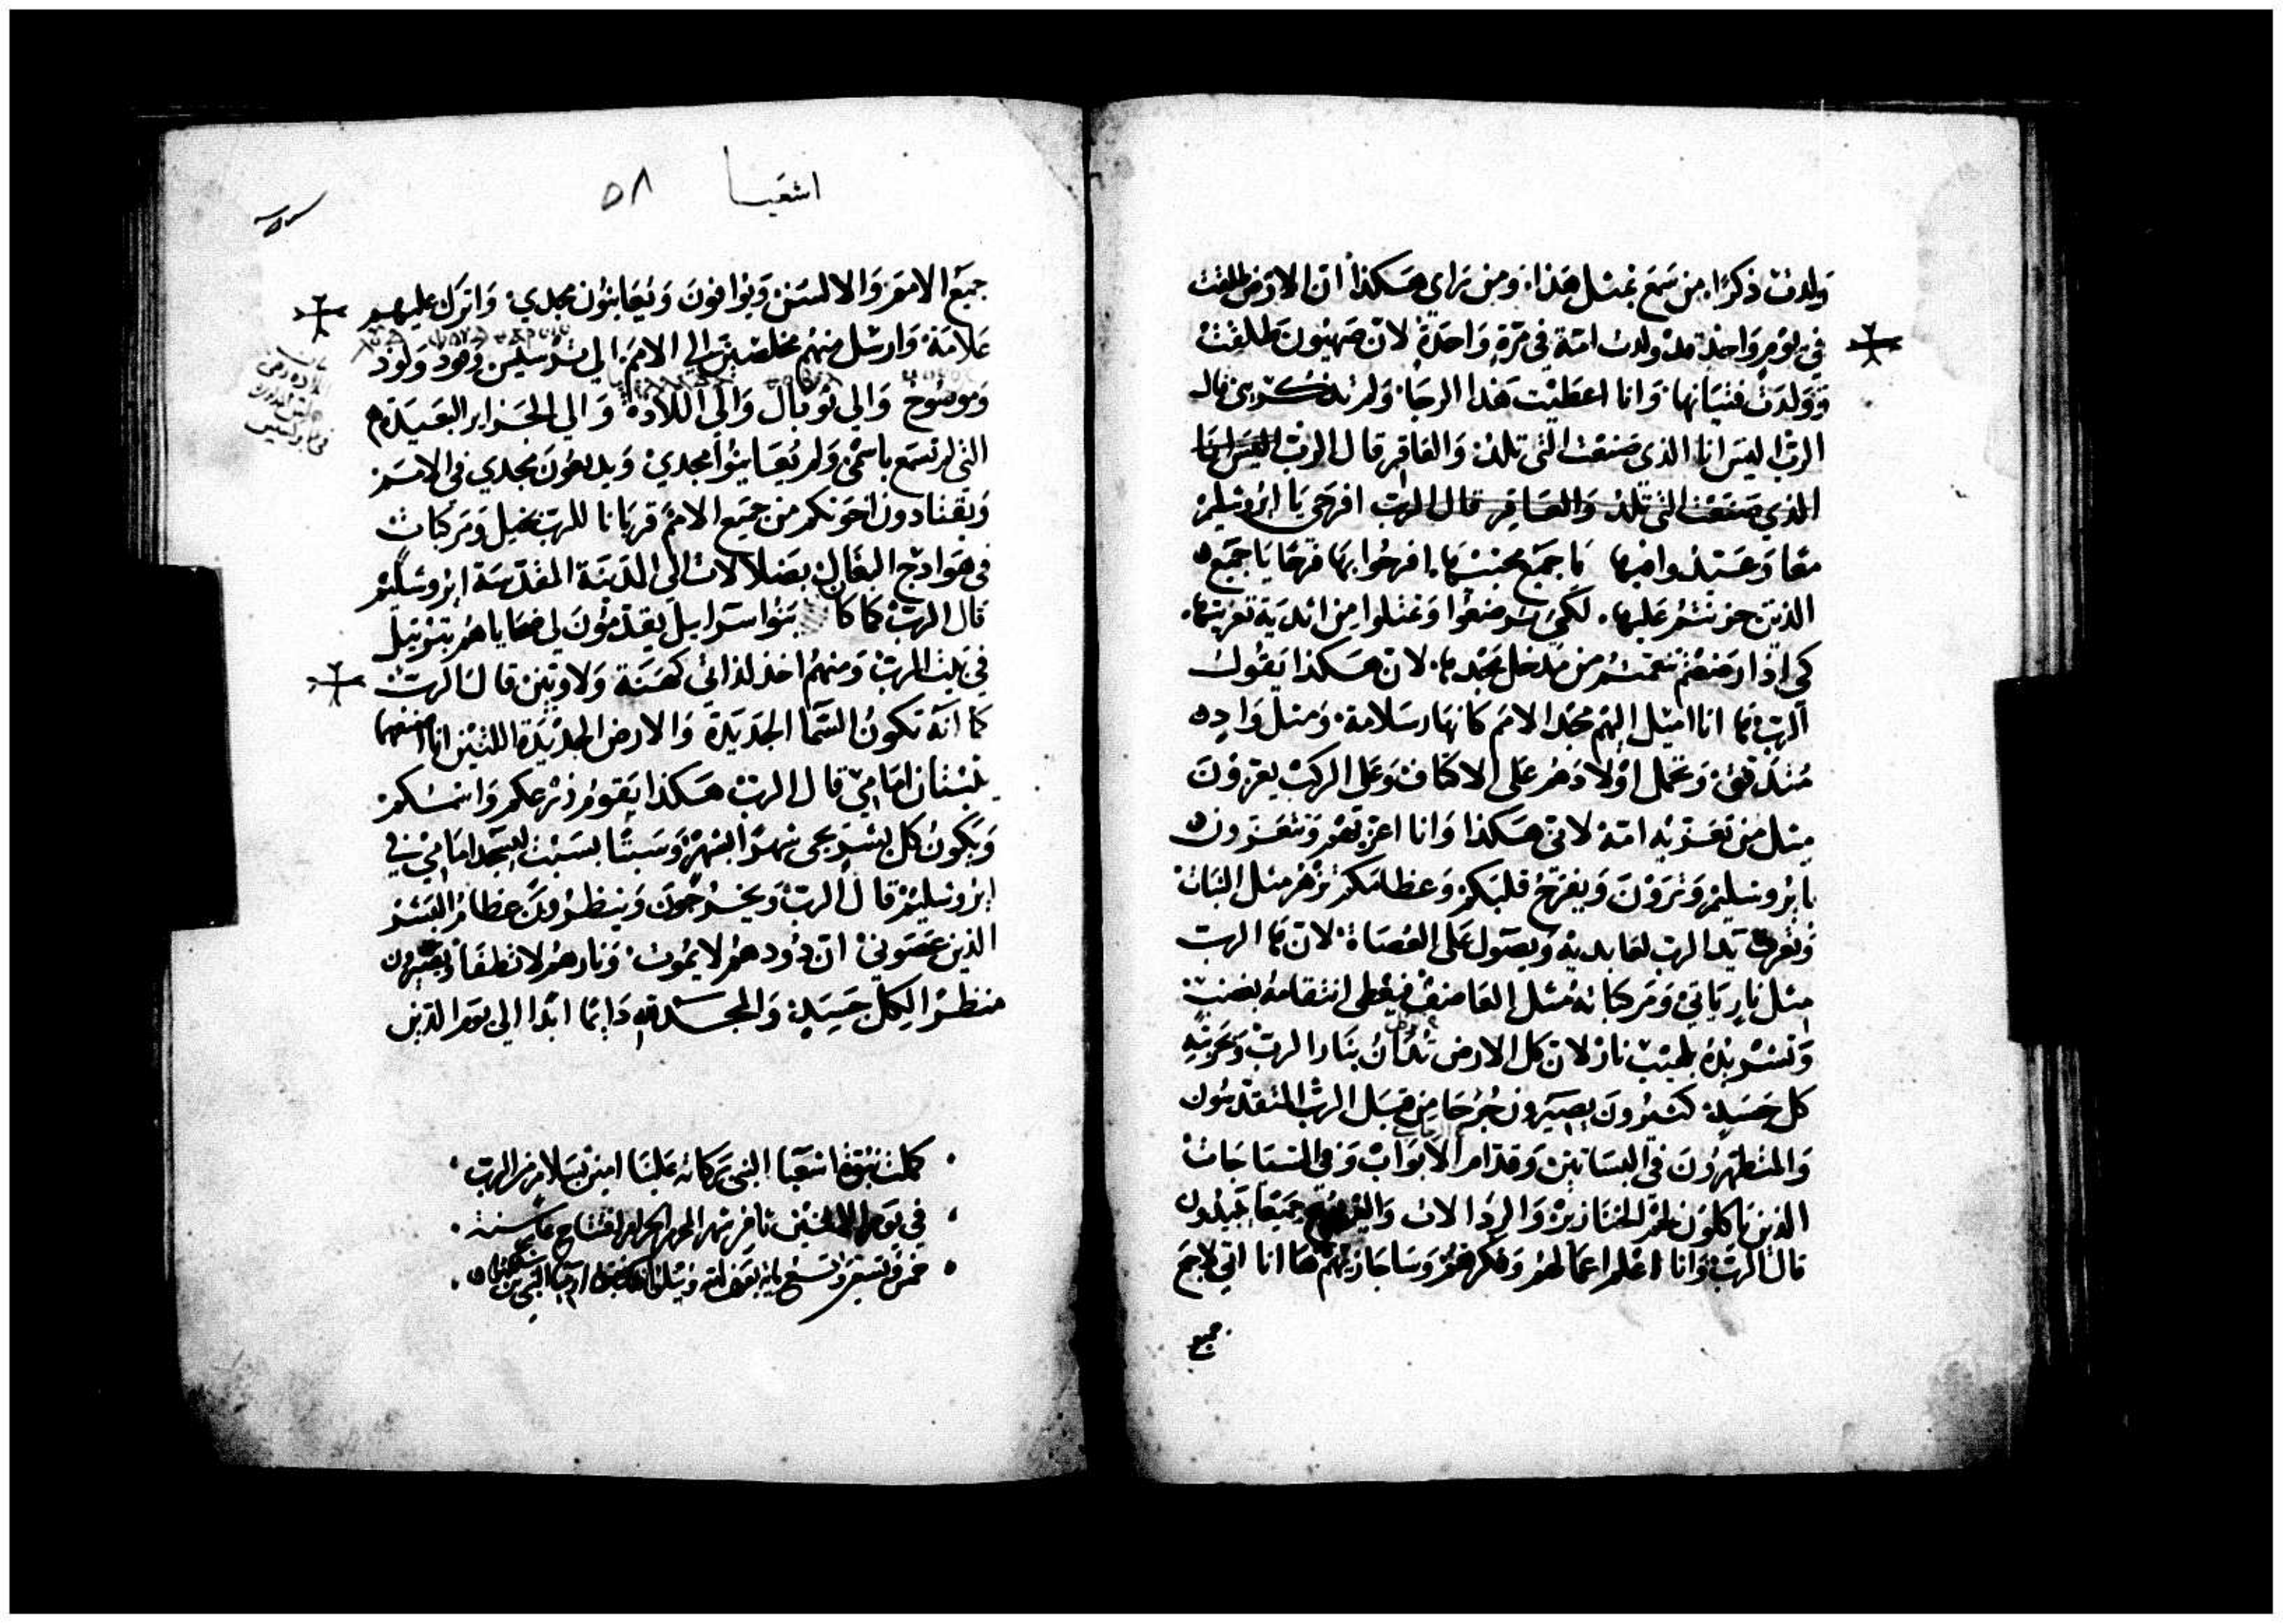 ولدت ذكرًا. من سمع بمثل هذا. ومن راى هكذا ان الارض طلقت
في يوم واحد ولدت امة في مرة واحدة لان صهيون طلقت
وولدت فتيانها وانا اعطيت هذا الرجا ولم تذكريني قال
الرب اليس انا الذي صنعت التي تلد والعاقر قال الرب اليس انا
الذي صنعت التي تلد والعاقر قال الرب افرحي يا ايروشليم
معا وعيدوا فيها يا جميع محبيها. افرحوا بها فرحا يا جميع
الذين حزنتم عليها. لكي ترضعوا وتمتلوا من اثدية تعزيتها.
كي اذا رضعتم تنعمتم من مدخل مجدها. لان هكذا يقول
الرب ها انا اميل اليهم مجد الامم كانهار سلامة ومثل وادٍ
متدفق وتحمل اولادهم على الاكتاف وعلى الركب يعزون
مثل من تعزيه امه لاني هكذا وانا اعزيكم وتتعزون
بايروشليم وترون ويفرح قلبكم وعظامكم تزهر مثل النبات
وتعرف يد الرب لعابديه ويصول على العصاة لان ها الرب
مثل نار ياتي ومركباته مثل العاصف فيعطي انتقامه بغضب
بلهيب نار لان كل الارض تدان بنار الرب وبحربته
كل جسد كثيرون يصيرون جرحا من قبل الرب المتقدسون
والمتطهرون في البساتين وقدام الابواب وفي
الذين ياكلون لحم الخنازير والرذالات جميعا يبيدون
قال الرب وانا اعلم اعمالهم وفكرهم وساجازيهم ها انا اتي لاجمع
جميع
اشعيا ٥٨
جميع الامم والالسن ويوافون ويعاينون مجدي واترك عليهم
علامة وارسل منهم مخلصين الى الامم الى ترسيس وفود ولود
وموسوخ والى توبال والى اللاده والى الجزاير البعيدة
التي لم تسمع باسمي ولم يعاينوا مجدي ويذيعون مجدي في الامم
ويقتادون اخوتكم من جميع الامم قربانا للرب بخيل ومركبات
في هوادج البغال بضلالات الى المدينة المقدسة ايروشليم
قال الرب كما كا بنوا اسراييل يقدمون لي ضحاياهم بترتيل
في بيت الرب ومنهم اخذ لذاتي كهنة ولاويين قال الرب
كما انه تكون السما الجديدة والارض الجديدة اللتين انا اصنعهما
يثبتان امامي قال الرب هكذا يقوم زرعكم واسمكم
ويكون كل بشر يجي شهرًا لشهر وسبتًا لسبت ليسجد امامي في
ايروشليم قال الرب ويخرجون وينظرون عظام البشر
الذين عصوني ان دودهم لا يموت ونارهم لا تطفا ويصيرون
منظرا لكل جسد والمجد لله دايما ابدا الى يوم الدين
كملت نبوة اشعيا النبي بركاته علينا امين بسلام من الرب
في يوم الاثنين شهر المحرم الحرام افتتاح سنة